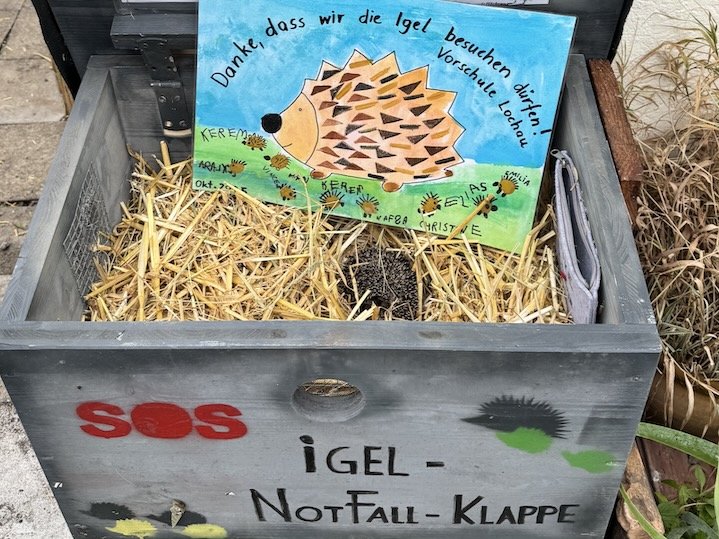 Danke, dass wir die Igel besuchen dürfen!
Vorschule Lochau
KEREM
EMILIA
Okt.
KEREM
ELAS
CHRISTINE
SOS
iGEL-
NotFall-Klappe